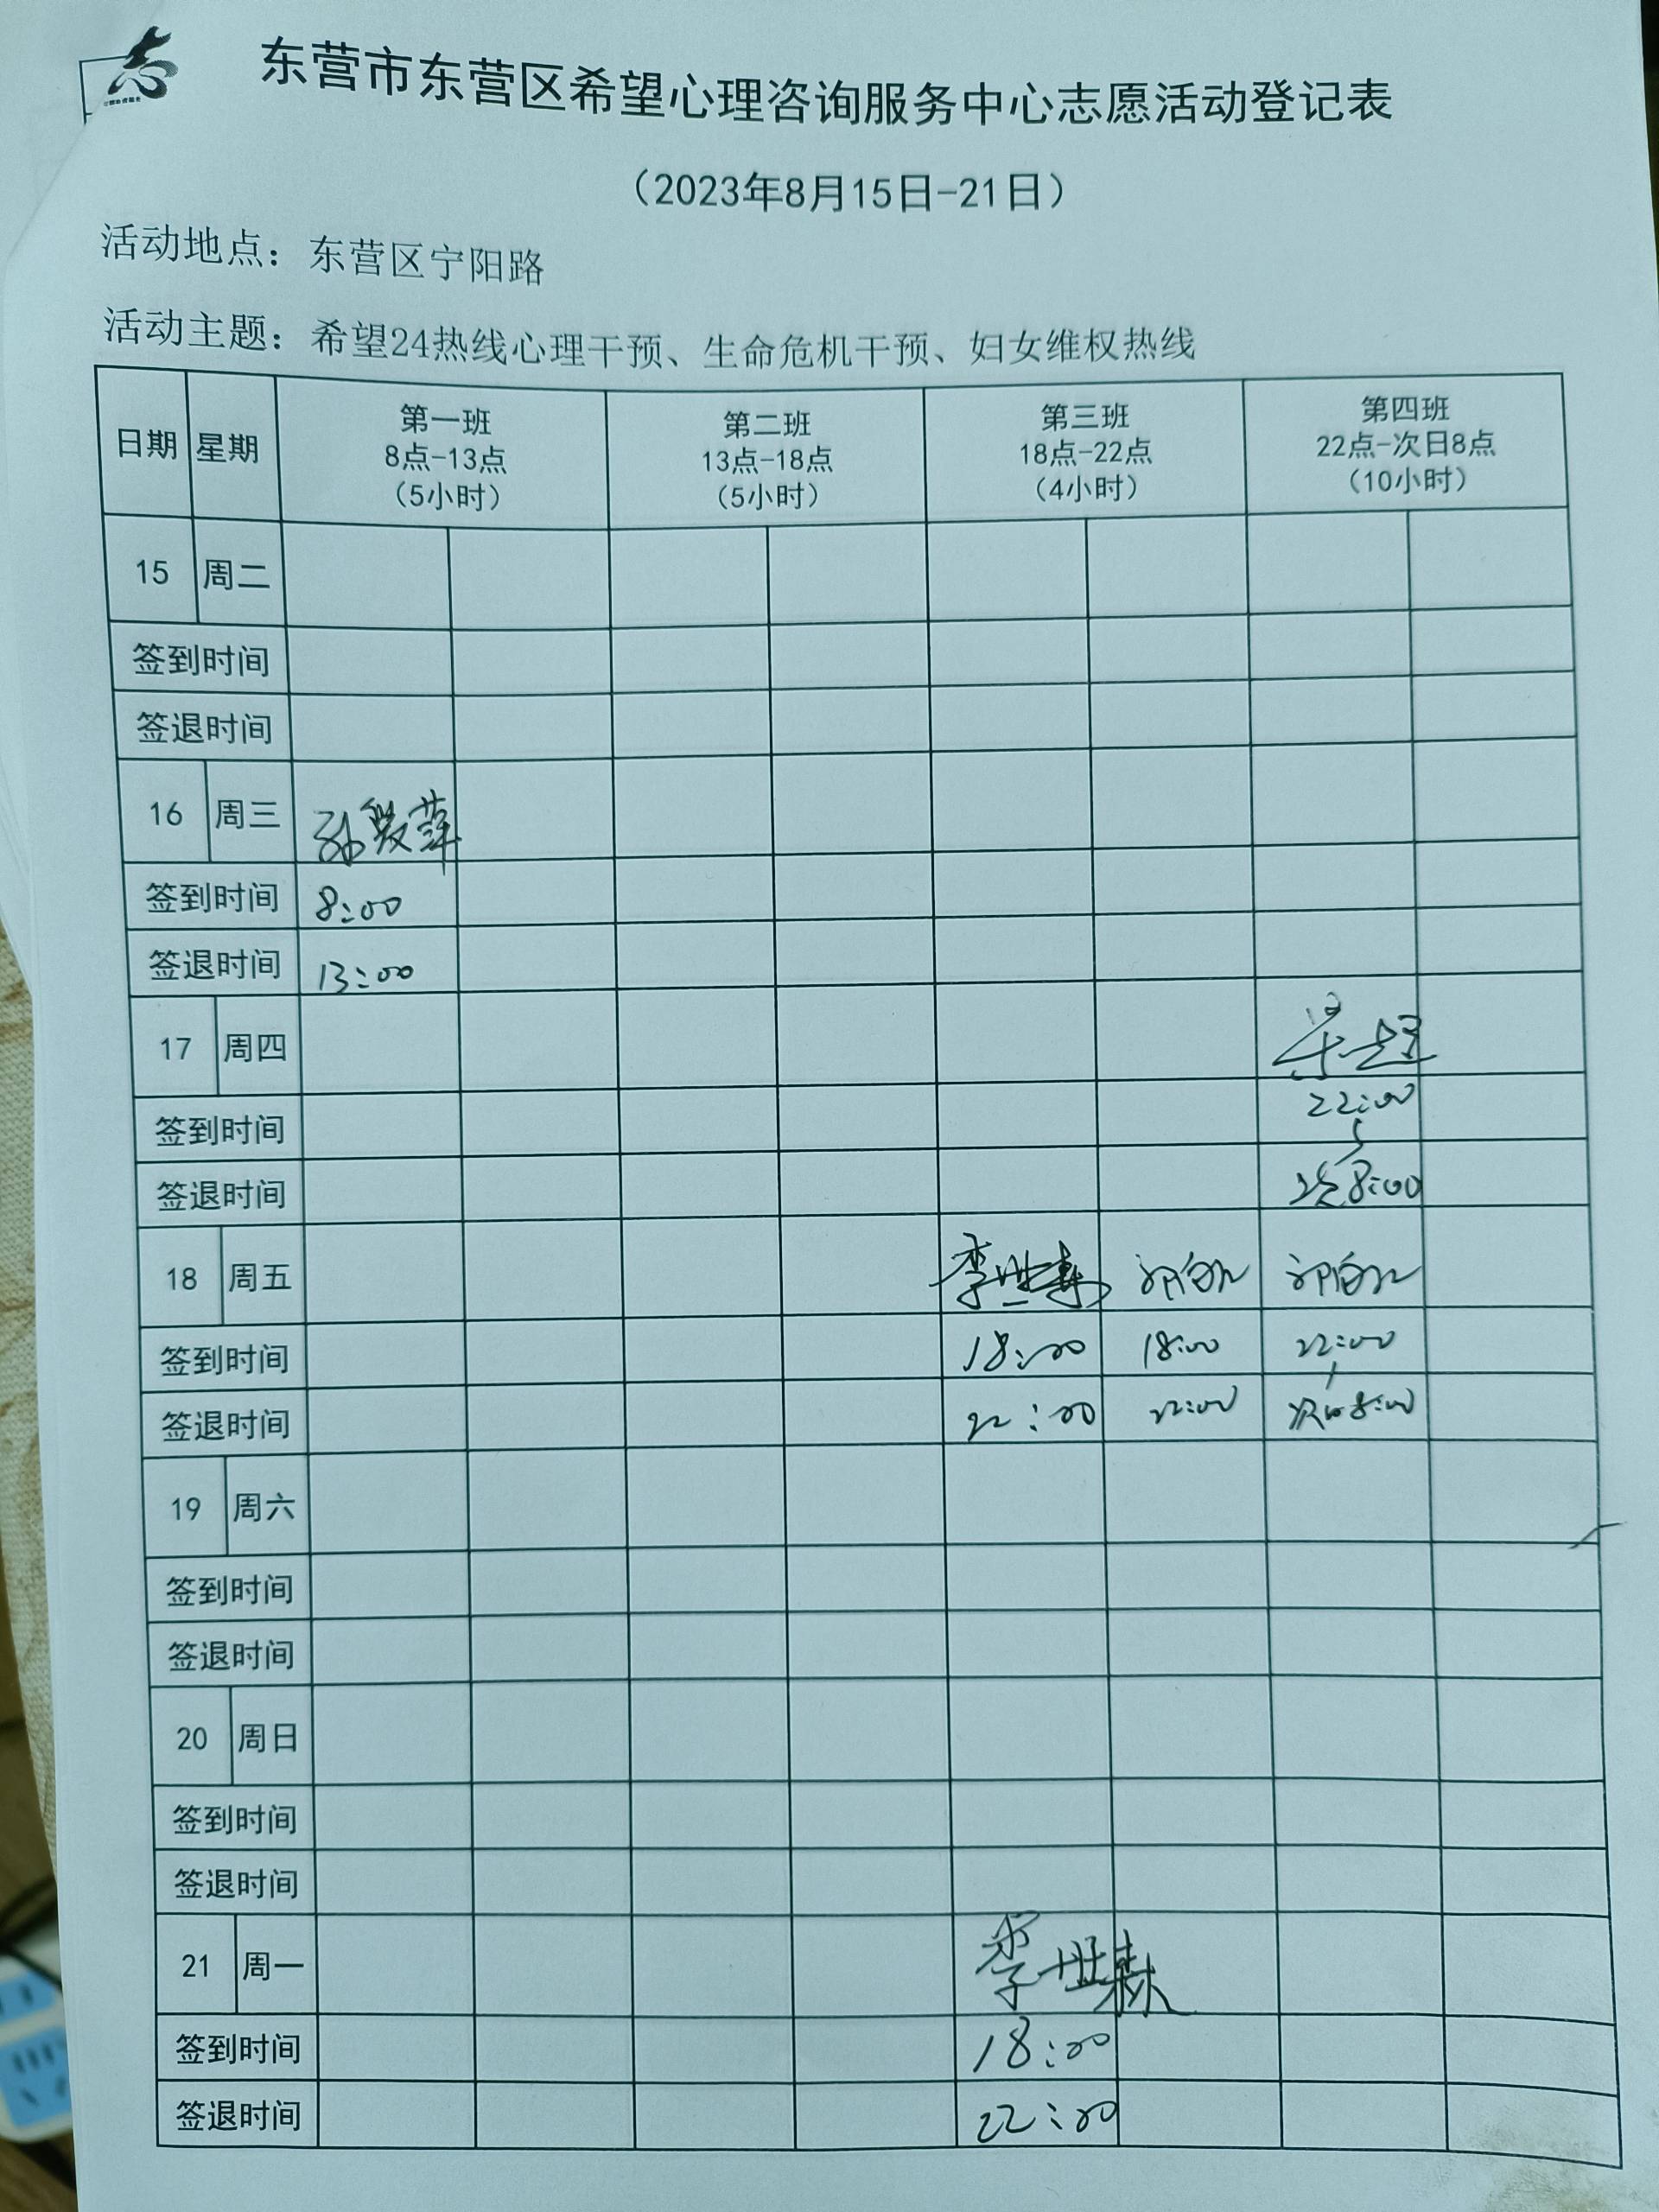 志
东营市东营区希望心理咨询服务中心志愿活动登记表
（2023年8月15日-21日）
活动地点：东营区宁阳路
活动主题：希望24热线心理干预、生命危机干预、妇女维权热线
日期 星期 第一班 第二班 第三班 第四班
8点-13点 13点-18点 18点-22点 22点-次日8点
（5小时） （5小时） （4小时） （10小时）
15 周二
签到时间
签退时间
16 周三
签到时间 8:00
签退时间 13:00
17 周四
签到时间 22:00
签退时间 次8:00
18 周五
签到时间 18:00 18:00 22:00
签退时间 22:00 22:00 次日8:00
19 周六
签到时间
签退时间
20 周日
签到时间
签退时间
21 周一 李世森
签到时间 18:00
签退时间 22:00